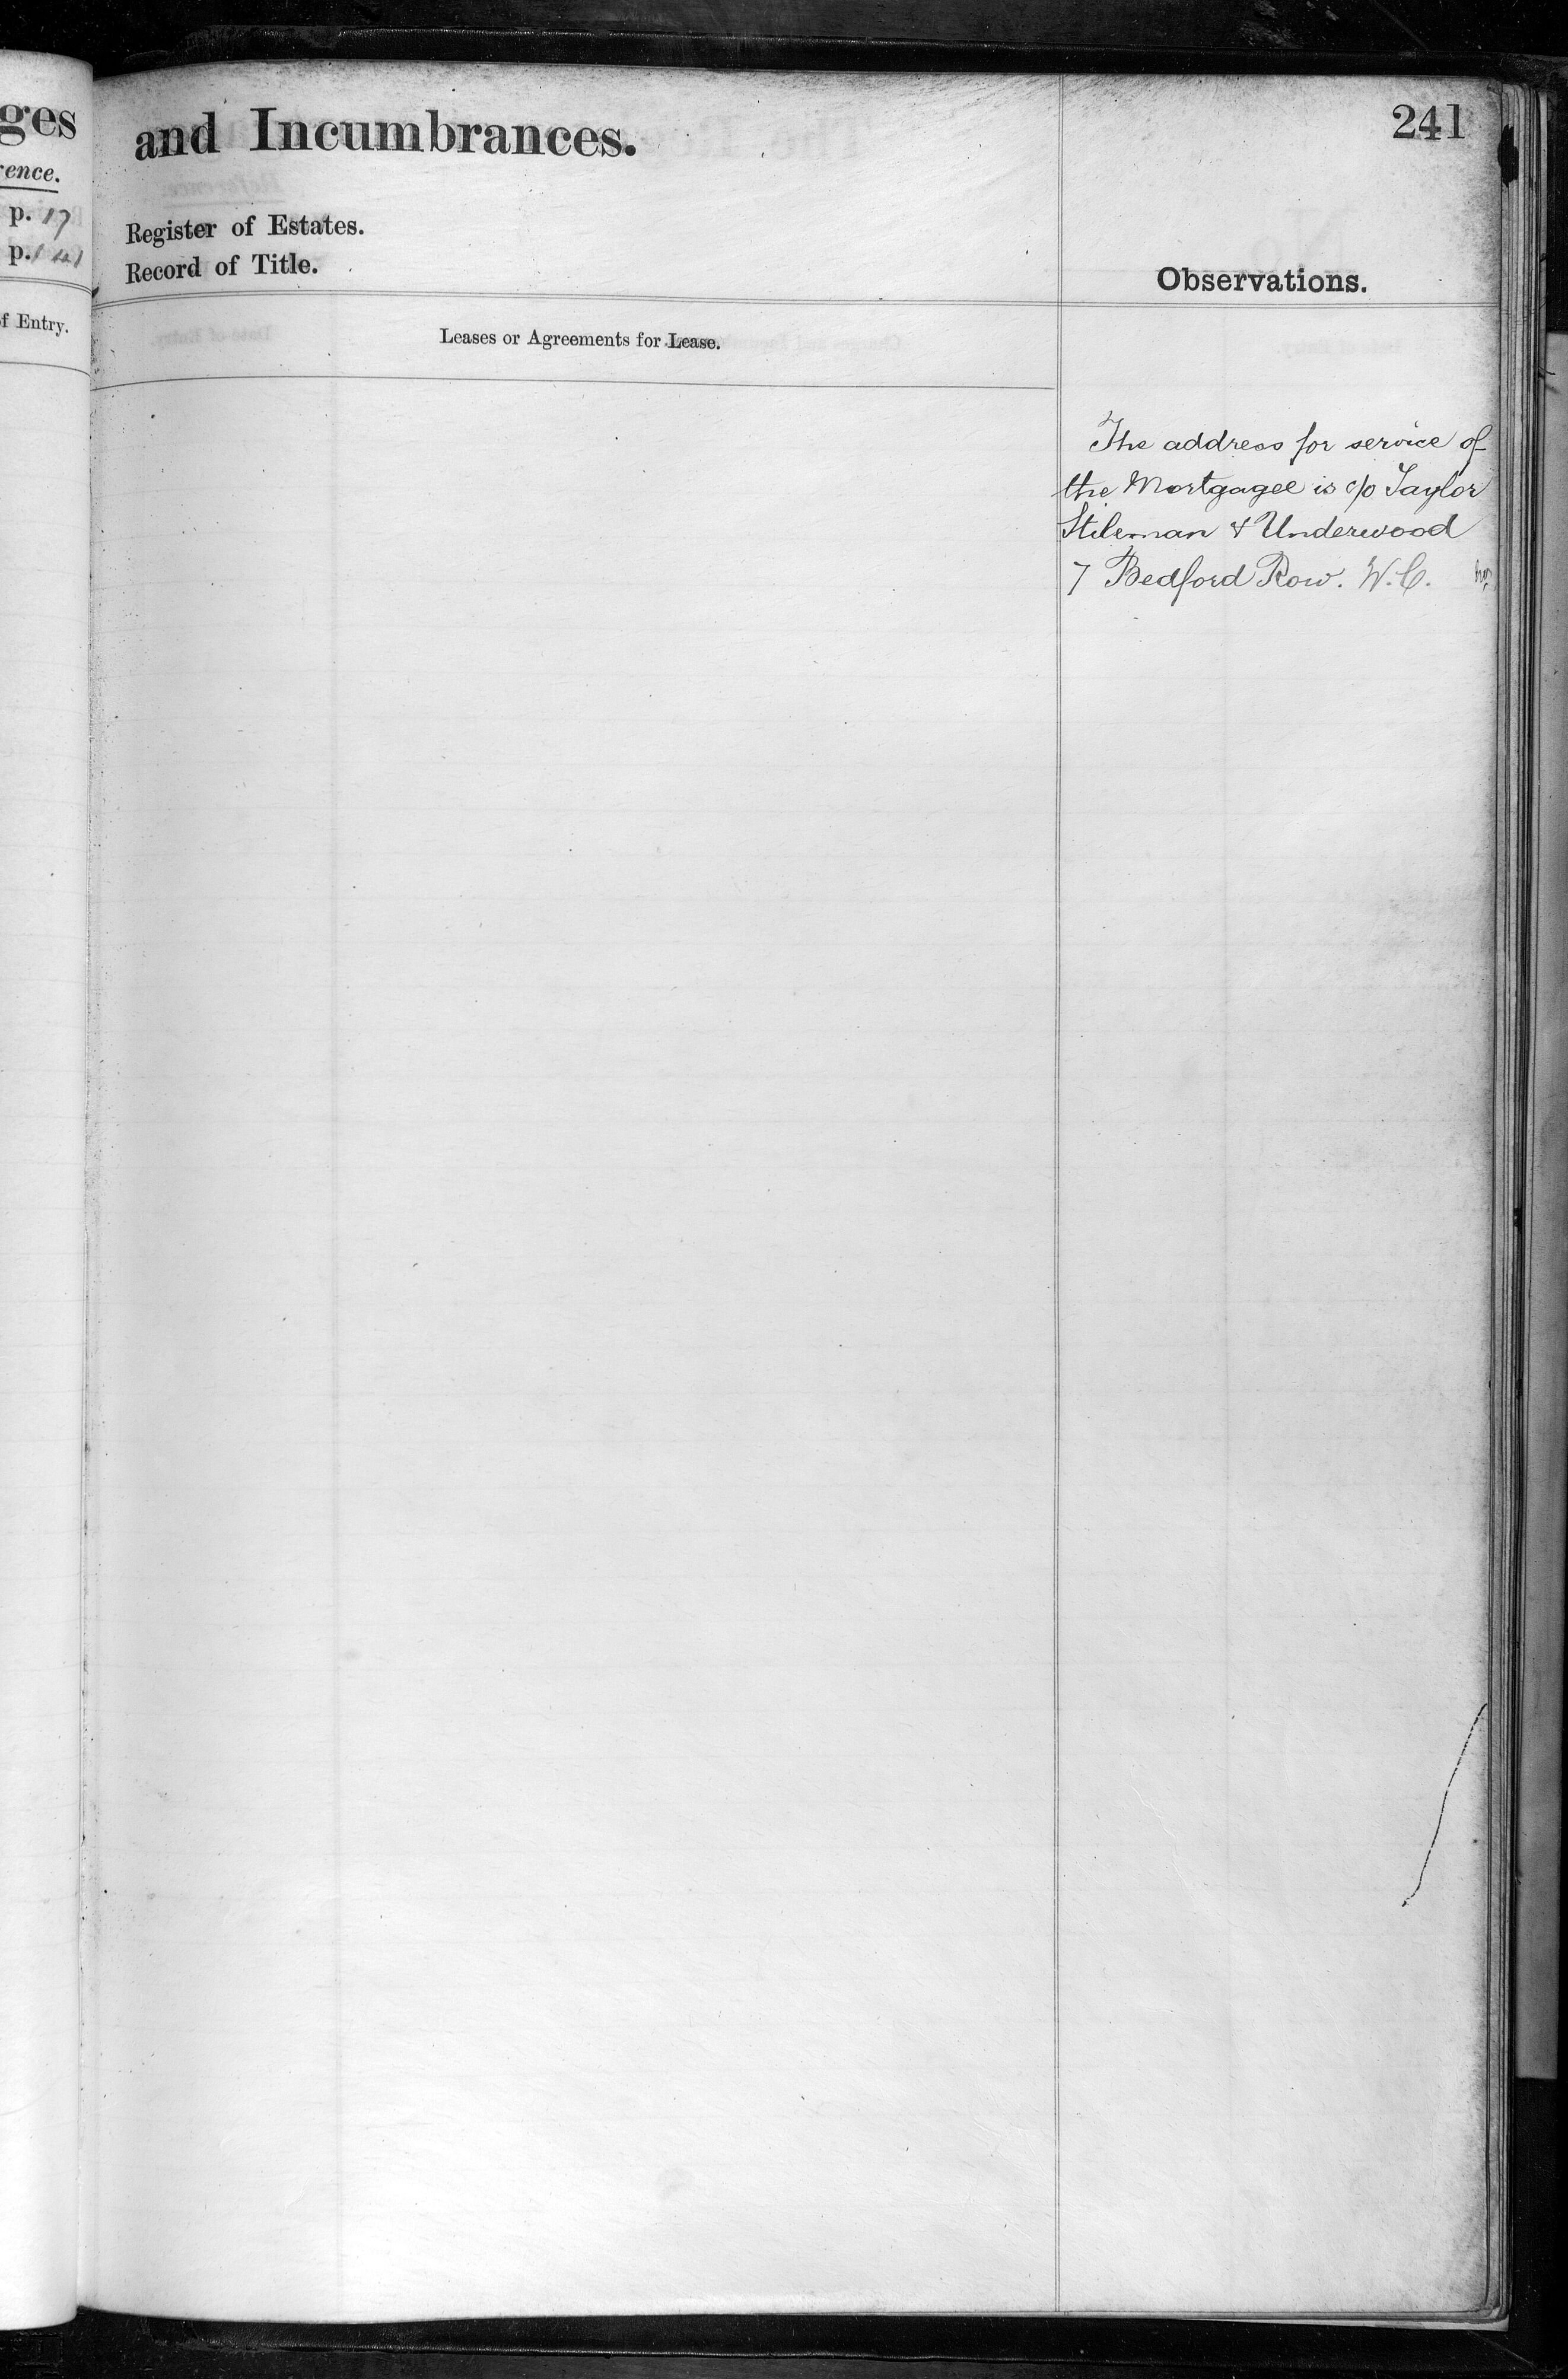 ges
rence.
p. 17
p. 141
f Entry.
and Incumbrances.
241
Register of Estates.
Record of Title.
Observations.
Leases or Agreements for Lease.
The address for service of
the Mortgagee is c/o Taylor
Stileman & Underwood
7 Bedford Row. W.C.